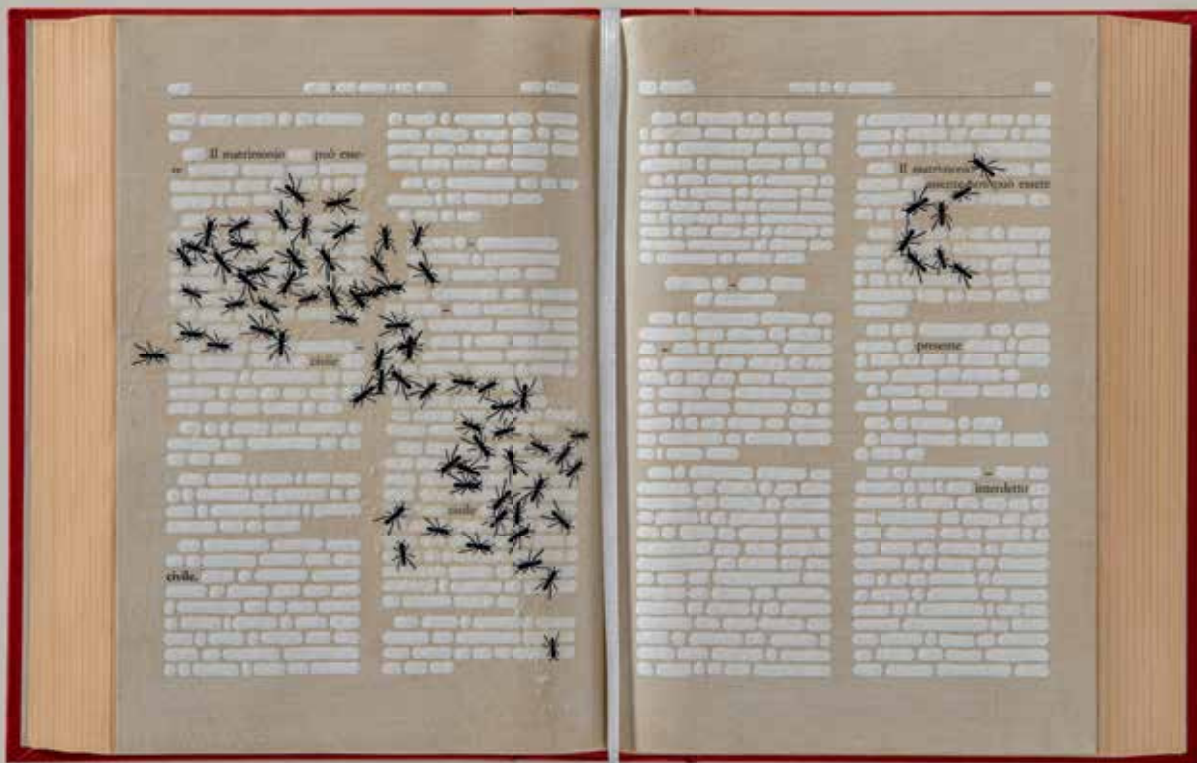 Il matrimonio può esse-
re
civile
civile.
civile
Il matrimonio
assente non può essere
presente
interdetto